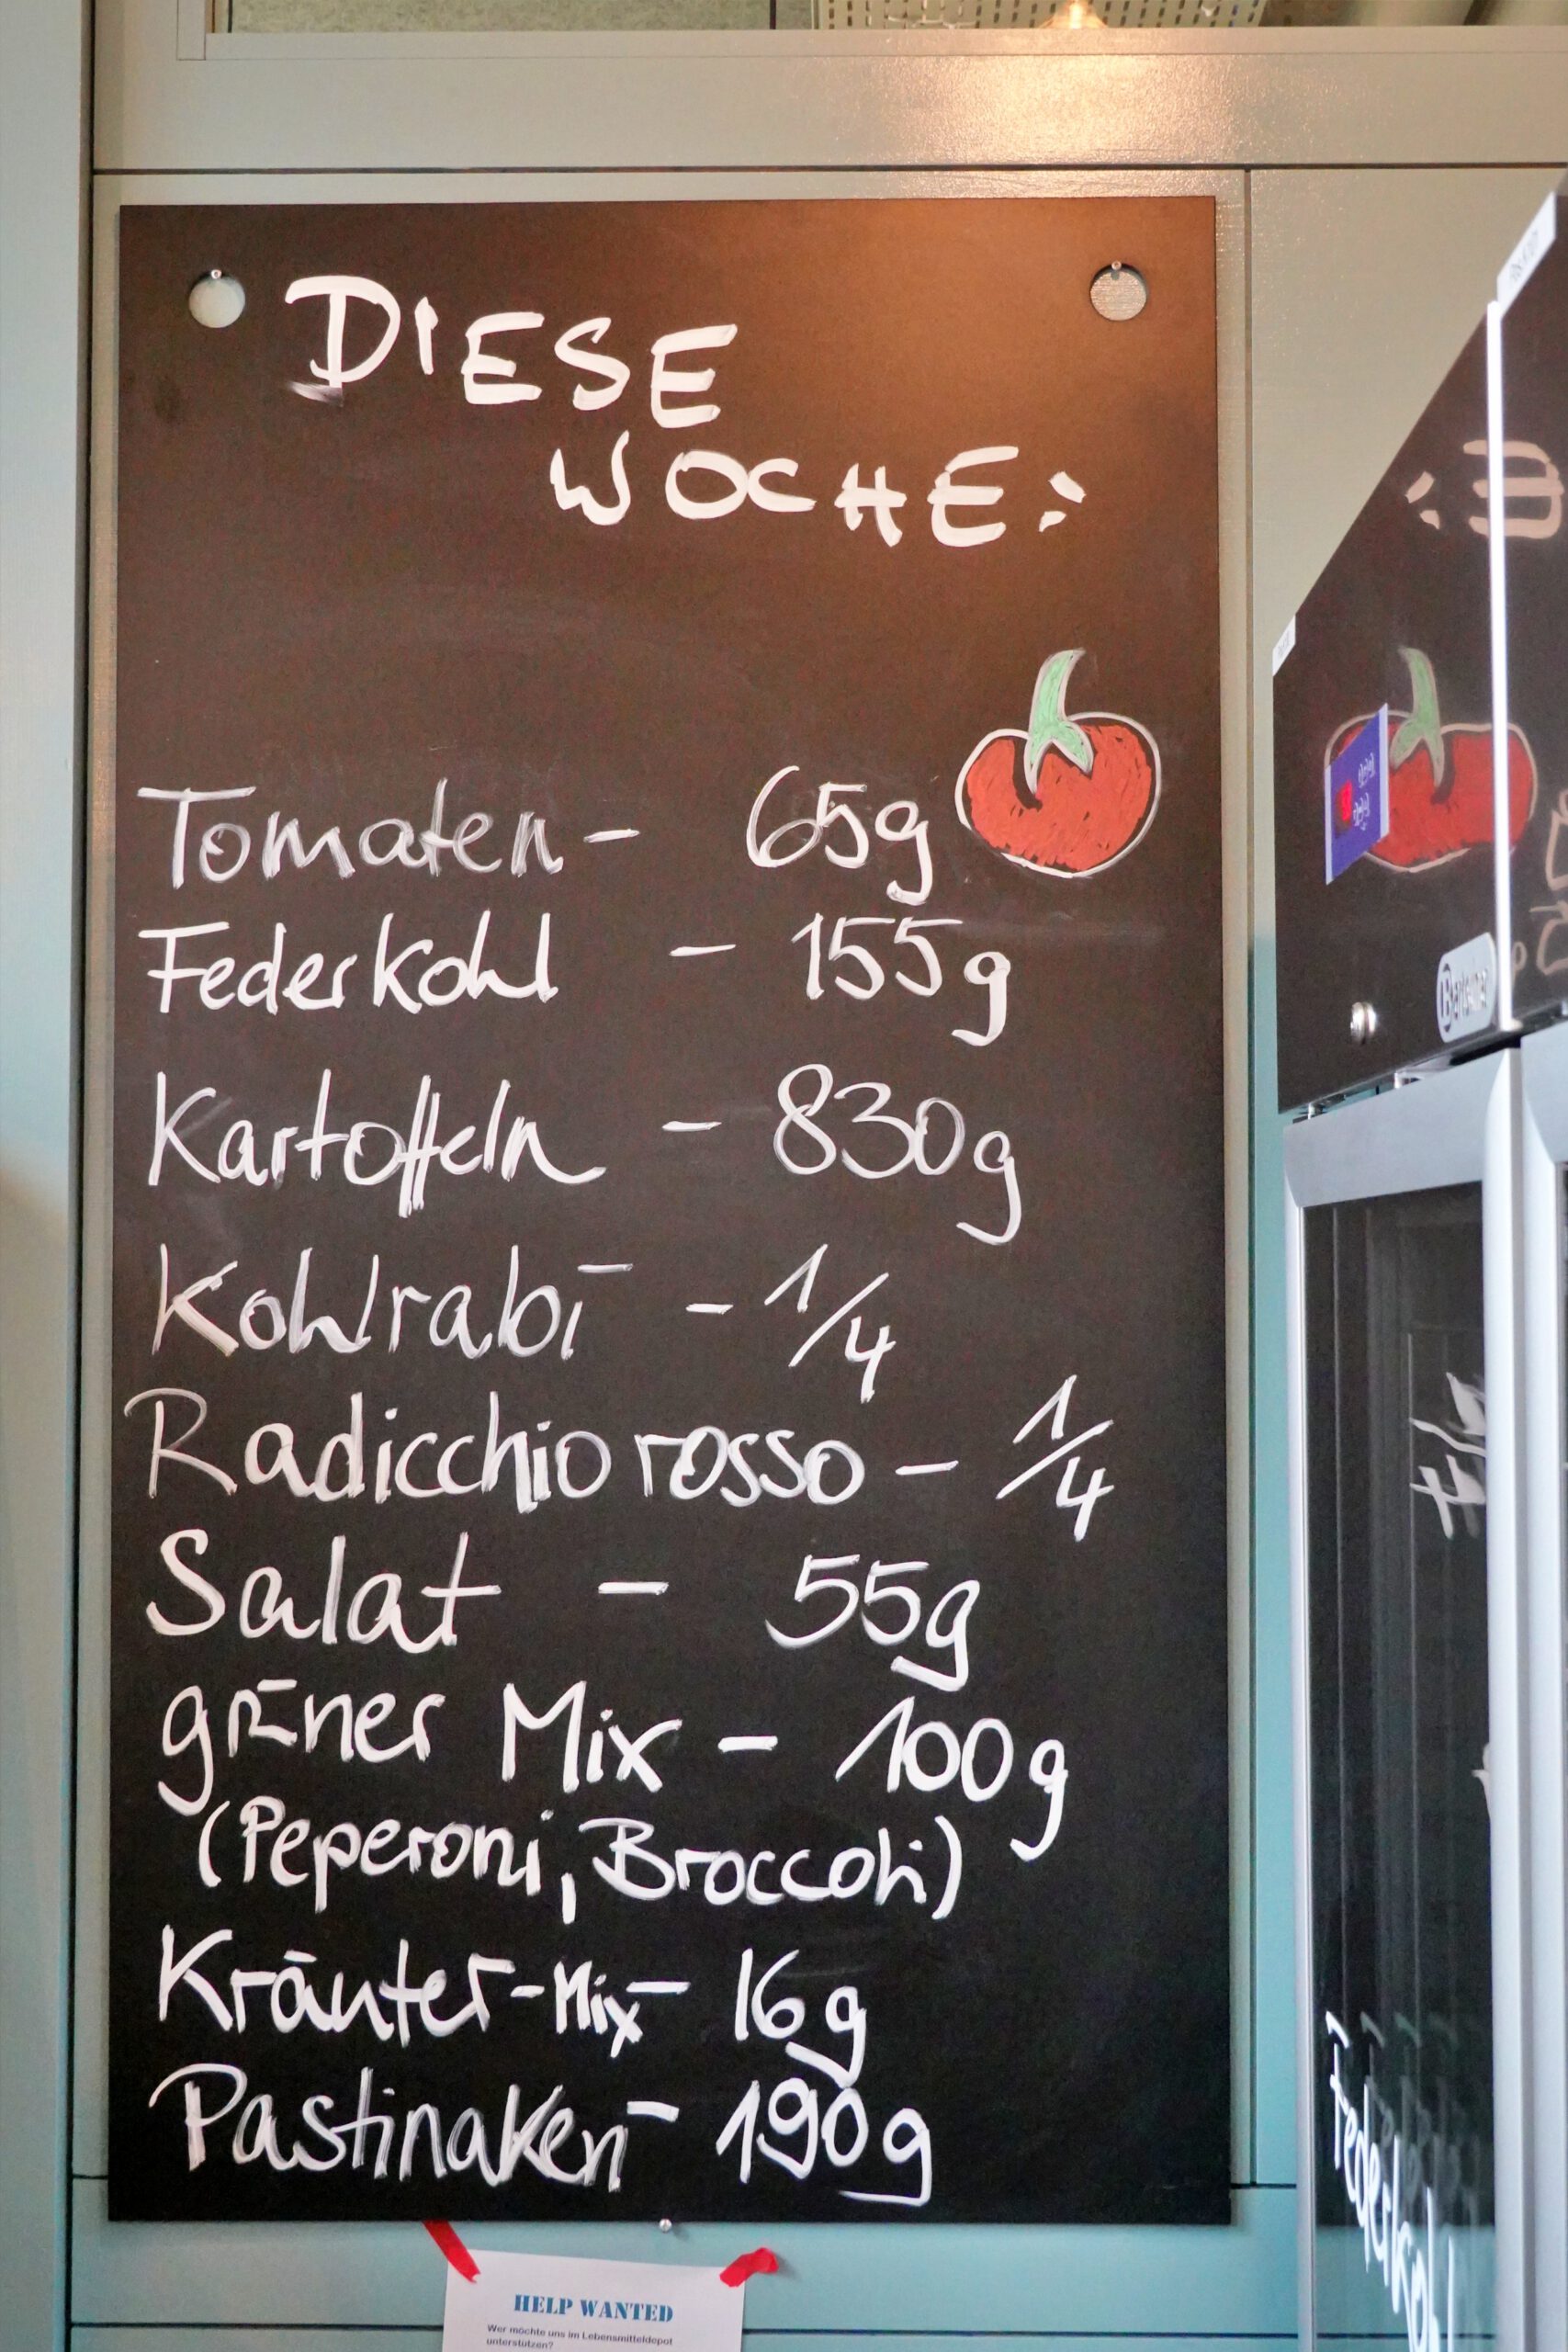 DIESE
WOCHE:
Tomaten - 65g
Federkohl - 155g
Kartoffeln - 830g
Kohlrabi - 1/4
Radicchio rosso - 1/4
Salat - 55g
grüner Mix - 100g
(Peperoni, Broccoli)
Kräuter-Mix - 16g
Pastinaken - 190g
HELP WANTED
Wer möchte uns im Lebensmitteldepot
unterstützen?
Federkohl